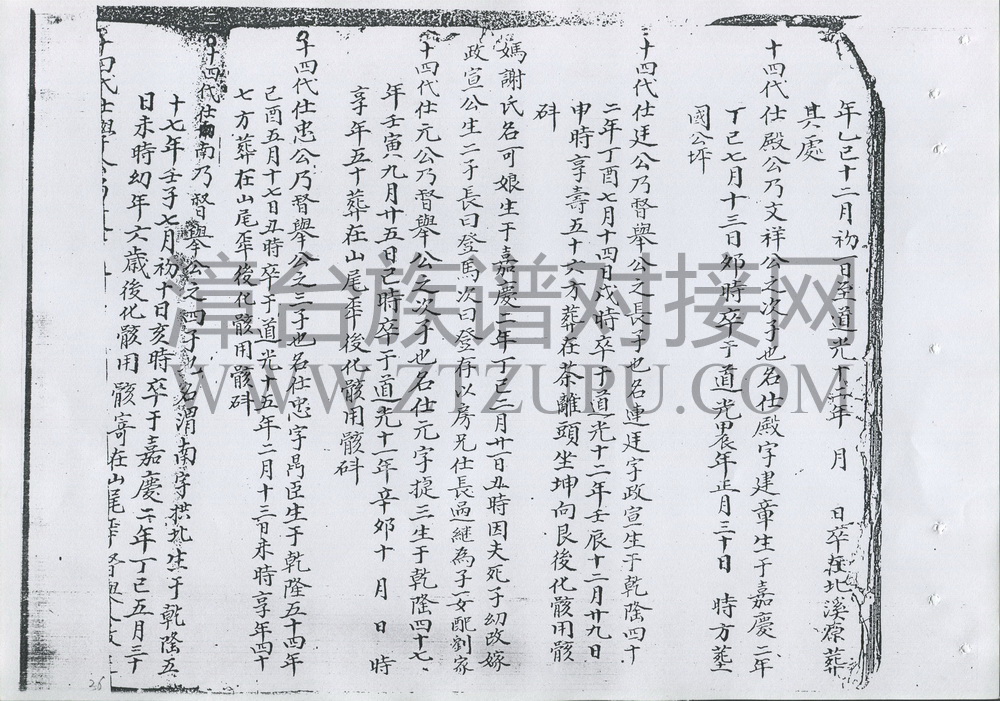 年乙巳十二月初一日至道光十六年 月 日卒在北溪原葬
其處
十四代仕殿公乃文祥公之次子也名仕殿字建章生于嘉慶二年
丁巳七月十三日夘時卒于道光甲辰年正月三十日 時方塟
國公坪
十四代仕廷公乃督舉公之長子也名連廷字政宣生于乾隆四十
二年丁酉七月十四日戌時卒于道光十二年壬辰十二月廿九日
申時享壽五十六方葬在茶離頭坐坤向艮後化骸用骸
㪷
媽謝氏名可娘生于嘉慶二年丁巳二月廿一日丑時因夫死子幼改嫁
政宣公生二子長曰登馬次曰登存以房兄仕長過継為子一女配劉家
十四代仕元公乃督舉公之次子也名仕元字提三生于乾隆四十七
年壬寅九月廿五日巳時卒于道光十一年辛夘十 月 日 時
享年五十葬在山尾庵後化骸用骸㪷
十四代仕忠公乃督舉公之三子也名仕忠字禼臣生于乾隆五十四年
己酉五月十七日丑時卒于道光十五年二月十三日未時享年四十
七方葬在山尾庵後化骸用骸㪷
十四代仕南乃督舉公之四子以名渭南字拱北生于乾隆五
十七年壬子七月初十日亥時卒于嘉慶二年丁巳五月三十
日未時幼年六歲後化骸用 骸寄在山尾庵
十四代仕
26
漳台族谱对接网
WWW.ZTZUPU.COM